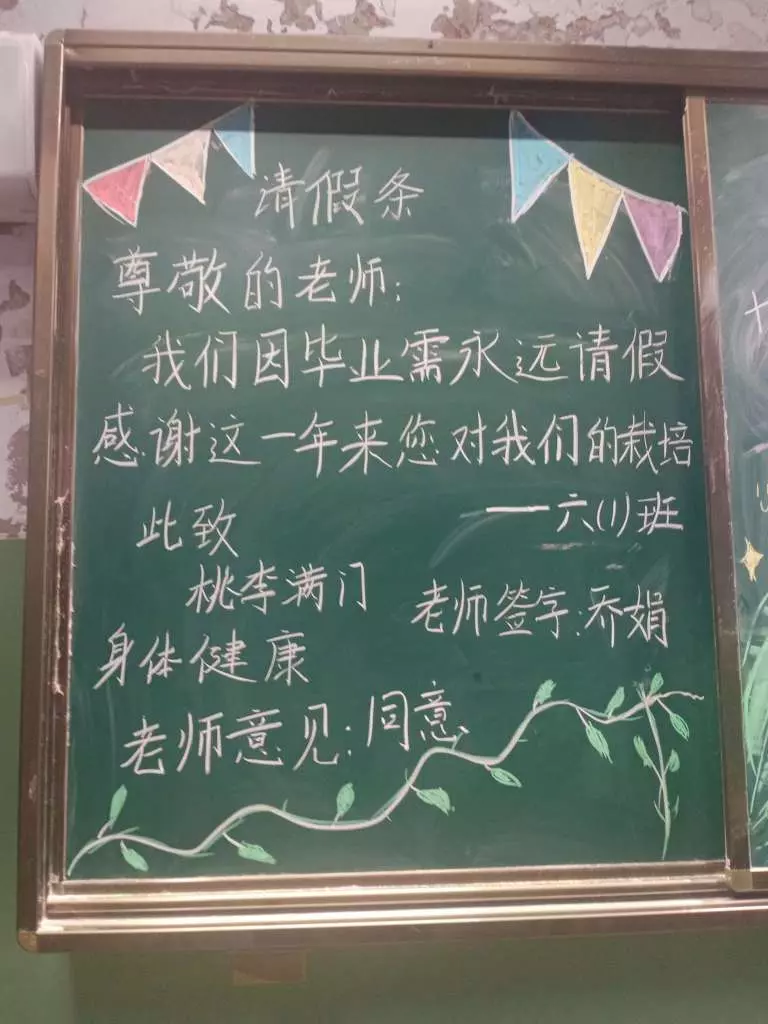 请假条
尊敬的老师:
我们因毕业需永远请假
感谢这一年来您对我们的栽培
——六(1)班
此致
桃李满门
身体健康
老师签字:乔娟
老师意见:同意